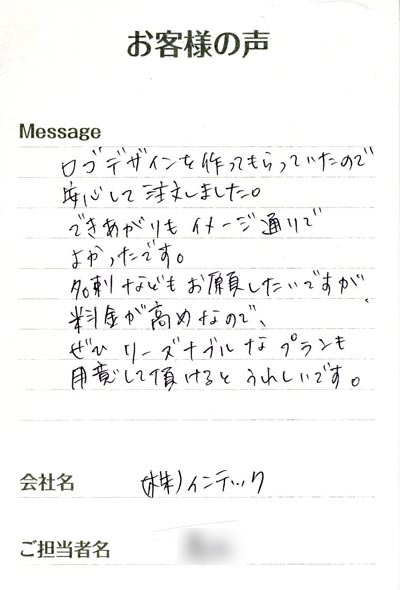 お客様の声
Message
ロゴデザインを作ってもらっていたので
安心して注文しました。
できあがりもイメージ通りで
よかったです。
名刺などもお願したいですが、
料金が高めなので、
ぜひリーズナブルなプランも
用意して頂けるとうれしいです。
会社名 (株)インテック
ご担当者名